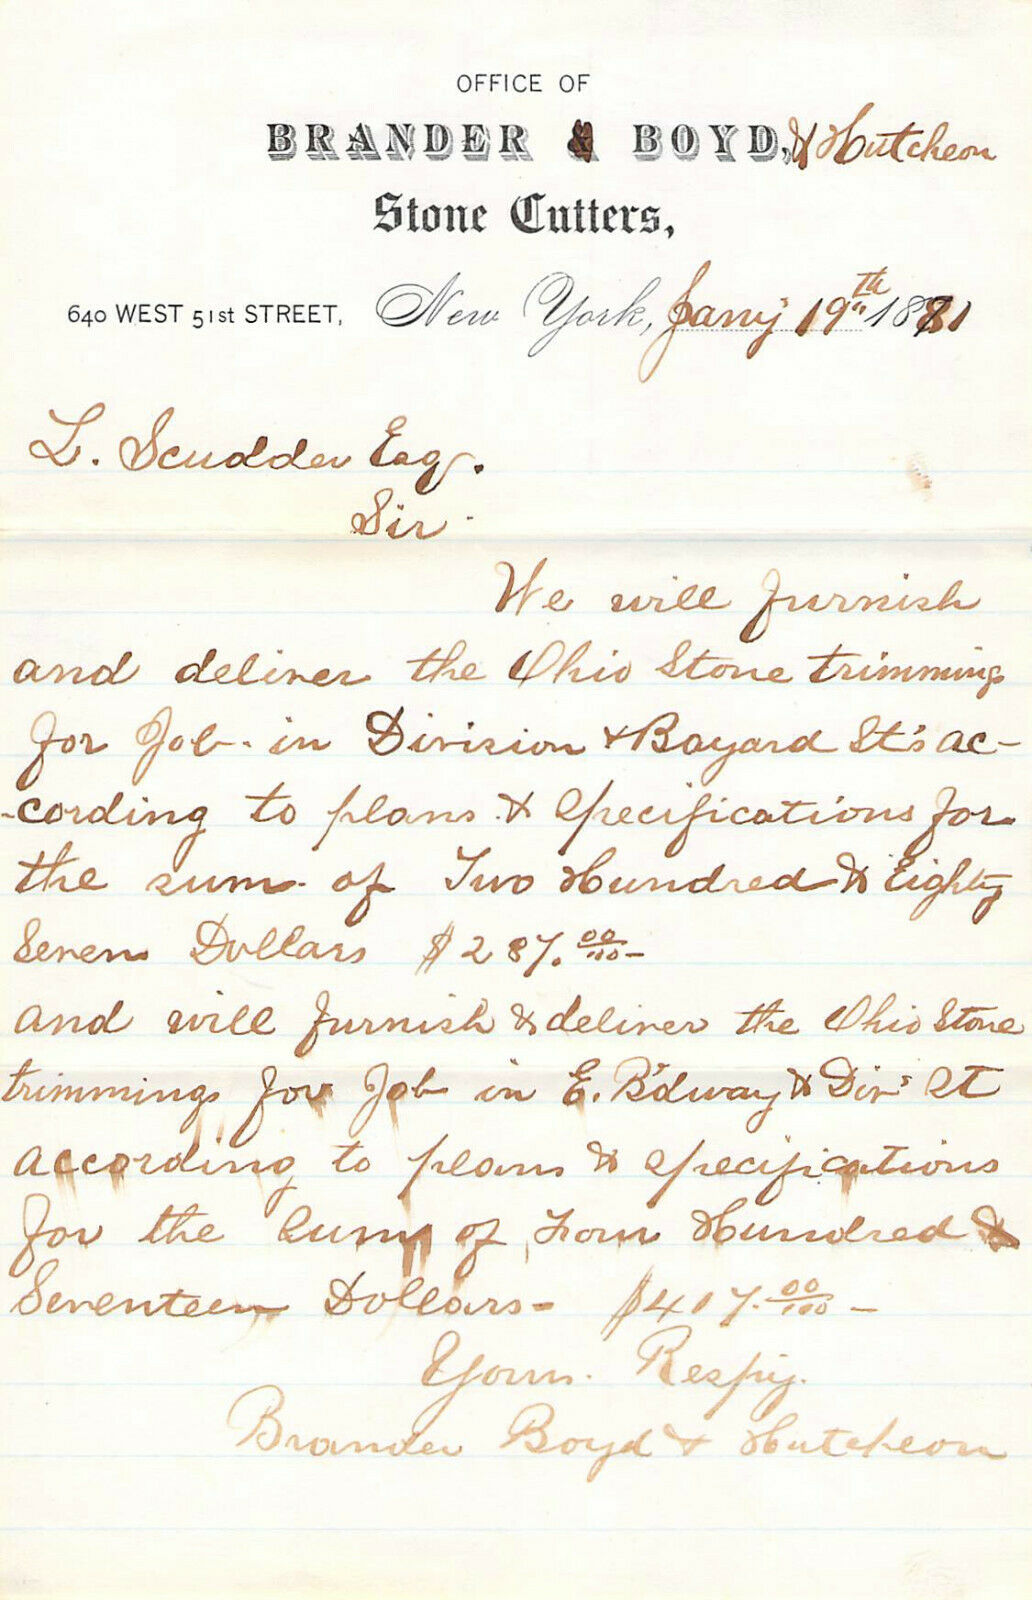 OFFICE OF
BRANDER & BOYD, & Hutcheon
Stone Cutters,
640 WEST 51st STREET, New York, Jany 19th 1881
L. Scudder Esq.
Sir
We will furnish
and deliver the Ohio Stone trimmings
for Job in Division & Bayard St's ac-
-cording to plans & specifications for
the sum of Two Hundred & Eighty
Seven Dollars $287.00/100-
and will furnish & deliver the Ohio Stone
trimmings for Job in E. B'dway & Divs St
according to plans & specifications
for the sum of Four Hundred &
Seventeen Dollars- $417.00/100-
Yours. Respy.
Brander Boyd & Hutcheon